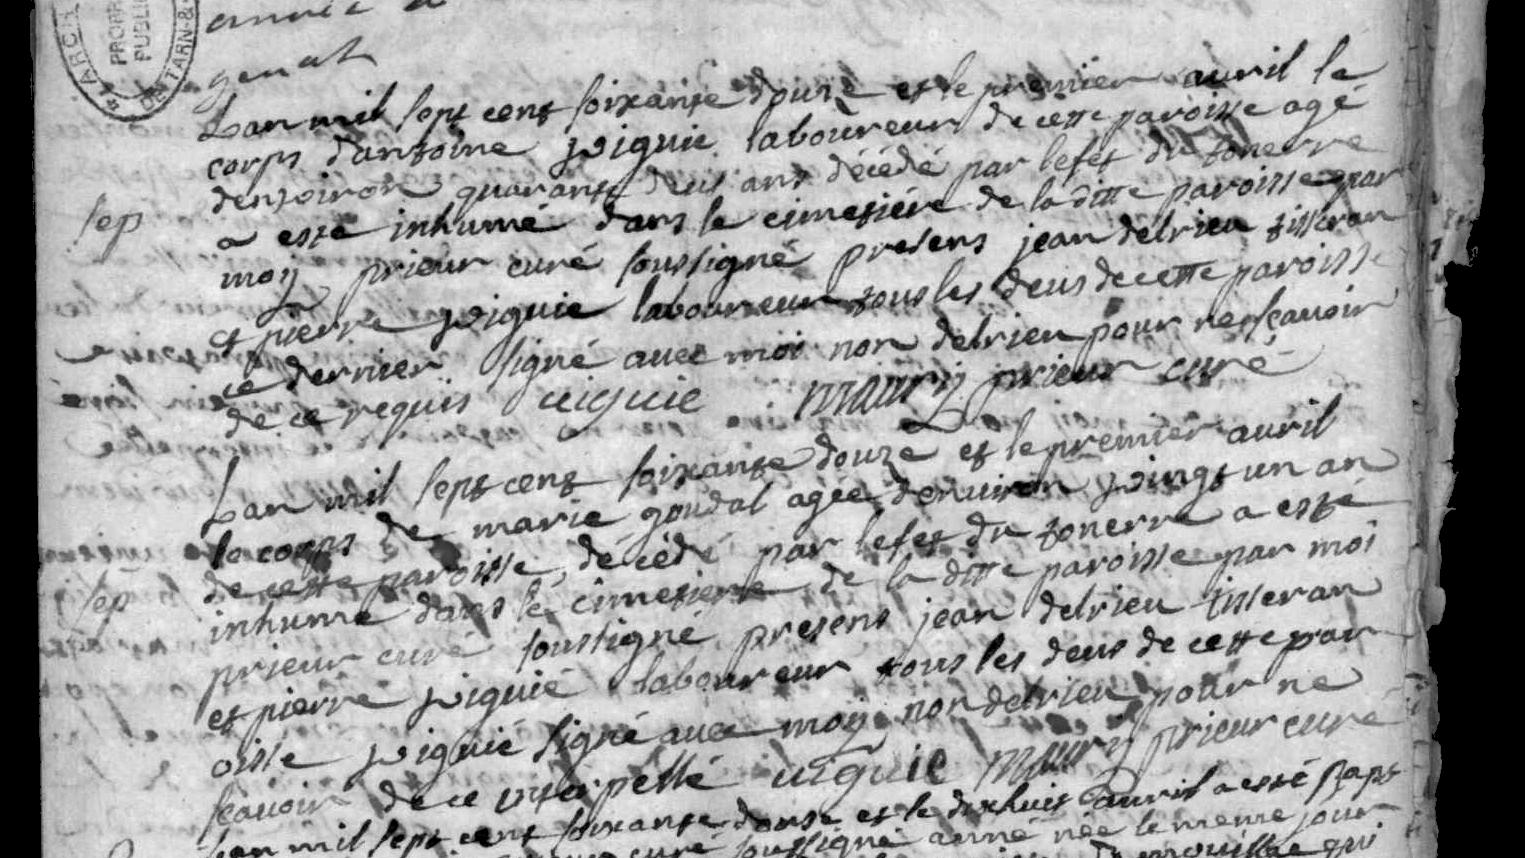 ARCH
PROPR
PUBLI
DE TARN-&-
année
Lan mil sept cent soixante douze et le premier avril le
corps dantoine viguie laboureur de cette paroisse agé
denviron quarante deus ans décédé par lefet du tonerre
sep
a esté inhumé dans le cimetiére de la ditte paroisse par
moy prieur curé soussigné presens jean delrieu tisseran
et pierre viguie laboureur tous les deus de cette paroisse
ce dernier signé avec moi non delrieu pour ne sçavoir
de ce requis viguie maury prieur curé
Lan mil sept cent soixante douze et le premier avril
le corps de marie goudal agée denviron vingt un an
de cette paroisse, décédé par lefet du tonerre a esté
sep
inhumé dans le cimetiere de la ditte paroisse par moi
prieur curé soussigné presens jean delrieu tisseran
et pierre viguié laboureur tous les deus de cette par
oisse viguié signé avec moy non delrieu pour ne
sçavoir de ce interpellé viguie maury prieur curé
Lan mil sept cent soixante douse et le dixhuit avril a esté bapt
curé soussigné anne née le meme jour
qui